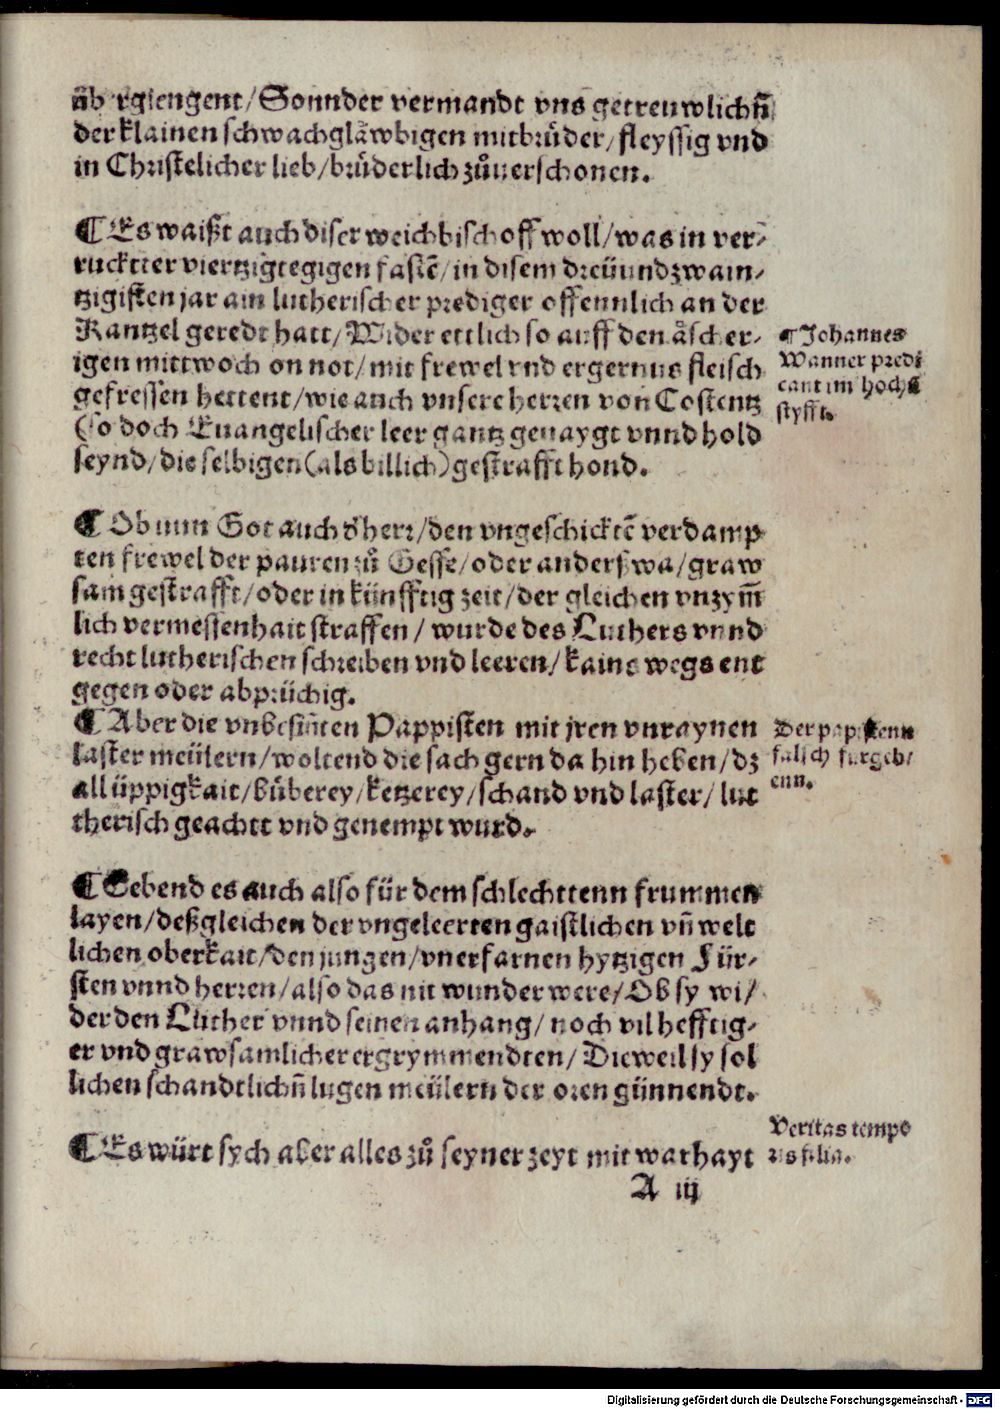 übergiengent/Sonnder vermandt vns getreuwlichñ
der klainen schwachglåwbigen mitbrůder/fleyssig vnd
in Christelicher lieb/brůderlich zůuerschonen.
¶ Es waißt auch diser weichbischoff woll/was in ver-
ruckter viertzigtegigen fastē/in disem dreüundzwain-
tzigisten jar ain lutherischer prediger offennlich an der
Kantzel geredt hatt/Wider ettlich so auff den åscher-
igen mittwoch on not/mit frewel vnd ergernus fleisch
gefressen hettent/wie auch vnsere herren von Costentz
(so doch Euangelischer leer gantz genaygt vnnd hold
seynd/die selbigen(als billich)gestrafft hond.
¶ Johannes
Wanner predi
cant im hochē
styfft.
¶ Ob nun Got auch d' herr/den vngeschicktē verdamp
ten frewel der pauren zů Gesse/oder anderßwa/graw
sam gestrafft/oder in künfftig zeit/der gleichen vnzym̄
lich vermessenhait straffen/wurde des Luthers vnnd
recht lutherischen schreiben vnd leeren/kains wegs ent
gegen oder abprüchig.
¶ Aber die vnbesiñten Pappisten mit jren vnraynen
laster meülern/woltend die sach gern da hin heben/dz
all üppigkait/bůberey/ketzerey/schand vnd laster/lut
therisch geacht vnd genempt wurd.
Der papistenn
falsch fürgeb/
enn.
¶ Gebend es auch also für dem schlechttenn frummen
layen/deßgleichen der vngeleerten gaistlichen vñ welt
lichen oberkait/den jungen/vnerfarnen hytzigen Für-
sten vnnd herren/also das nit wunder were/Ob sy wi/
der den Luther vnnd seinen anhang/noch vil hefftig-
er vnd grawsamlicher ergrymmendten/Dieweil sy sol
lichen schandtlichñ lugen meülern der oren günnendt.
¶ Es würt sych aber alles zů seyner zeyt mit warhayt
Veritas tempo
ris filia.
A iij
Digitalisierung gefördert durch die Deutsche Forschungsgemeinschaft - DFG